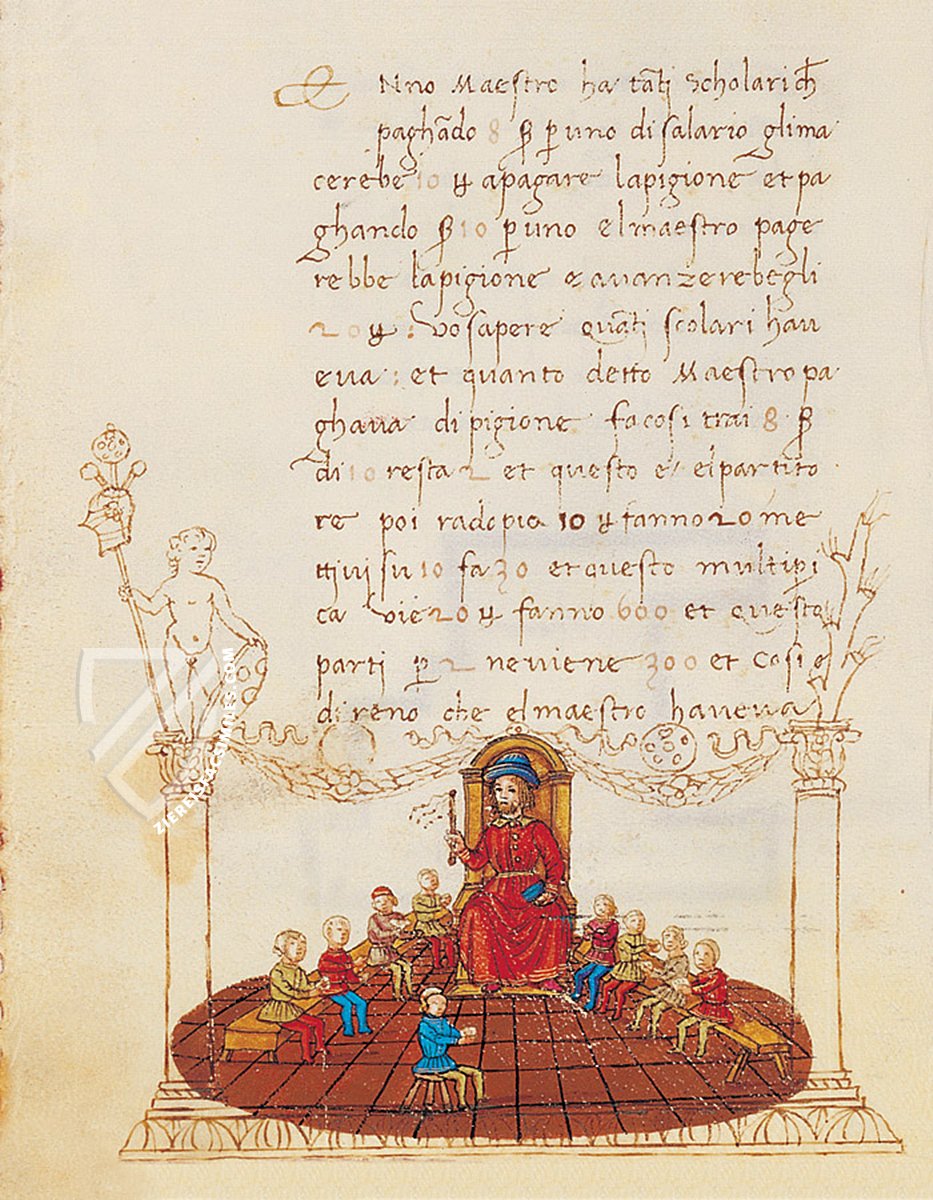 Nno Maestro ha tāti scholari ch̄
paghādo 8 p̱ uno di salario gli ma
cerebe 10 apagare lapigione et pa
ghando 10 p̱ uno elmaestro page
rebbe lapigione e avanzerebegli
20 : vo sapere quāti scolari hav
eva : et quanto detto Maestro pa
ghava di pigione fa cosi trai 8
di 10 resta 2 et questo e elpartito
re poi radopia 10 fanno 20 me
ttivi su 10 fa 30 et questo multip̱i
ca vie 20 fanno 600 et questo
parti p̱ 2 neviene 300 et cosi e
direno che elmaestro haveva
ZIEREISFACSIMILES.COM